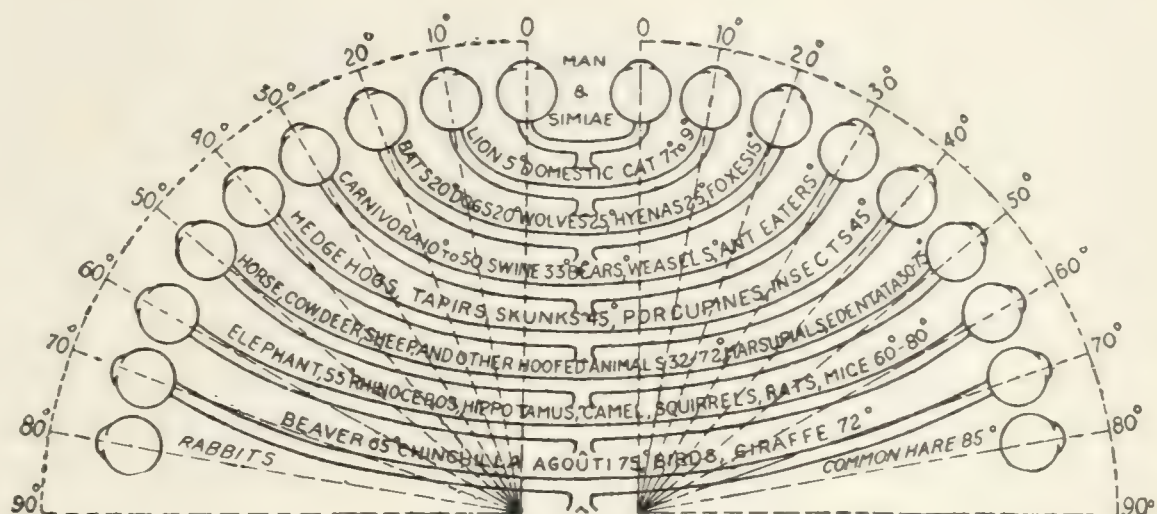 0 0
10° 10°
20° 20°
30° 30°
40° 40°
50° 50°
60° 60°
70° 70°
80° 80°
90° 90°
MAN
&
SIMIAE
LION 5° DOMESTIC CAT 7° TO 9°
BATS 20° DOGS 20° WOLVES 25°, HYENAS 25°, FOXES 15°
CARNIVORA 10° TO 50, SWINE 33° BEARS, WEASELS, ANT EATERS
HEDGE HOGS, TAPIRS SKUNKS 45°, PORCUPINES, INSECTS 45°
HORSE, COW DEER, SHEEP, AND OTHER HOOFED ANIMALS 32/72° MARSUPIALS EDENTATA 50/75°
ELEPHANT, 55° RHINOCEROS, HIPPOTAMUS, CAMEL, SQUIRRELS, RATS, MICE 60-80°
BEAVER 65° CHINCHILLA AGOÛTI 75° BIRDS, GIRAFFE 72°
RABBITS COMMON HARE 85°